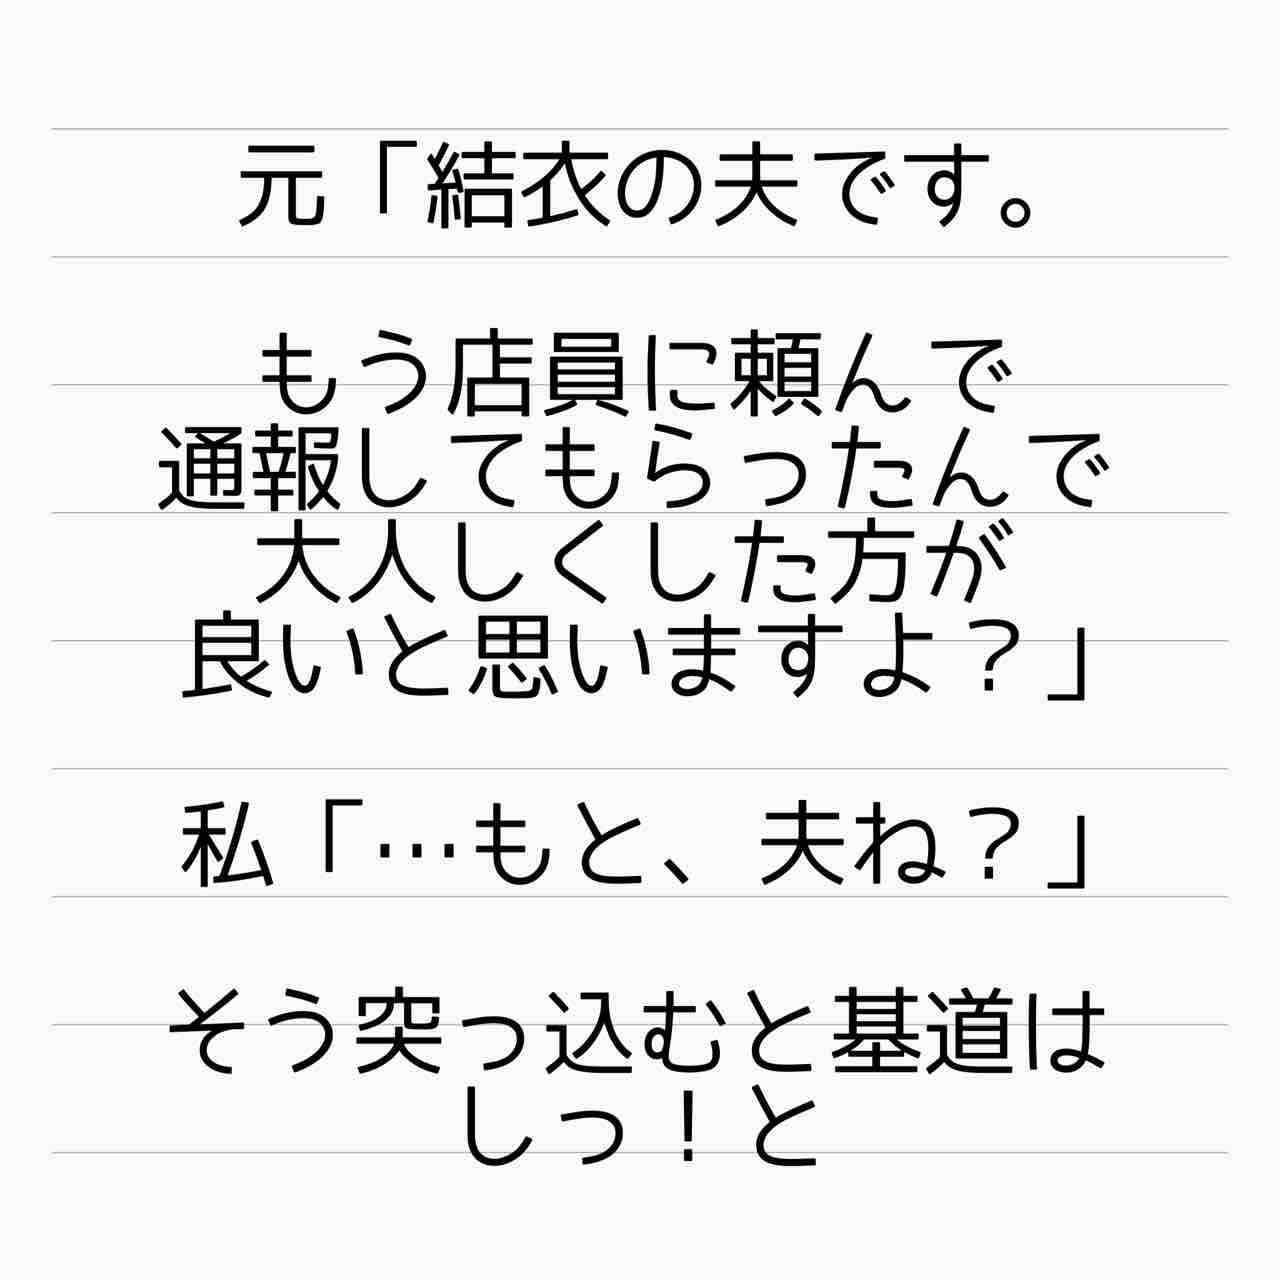 元「結衣の夫です。
もう店員に頼んで
通報してもらったんで
大人しくした方が
良いと思いますよ？」
私「…もと、夫ね？」
そう突っ込むと基道は
しっ！と